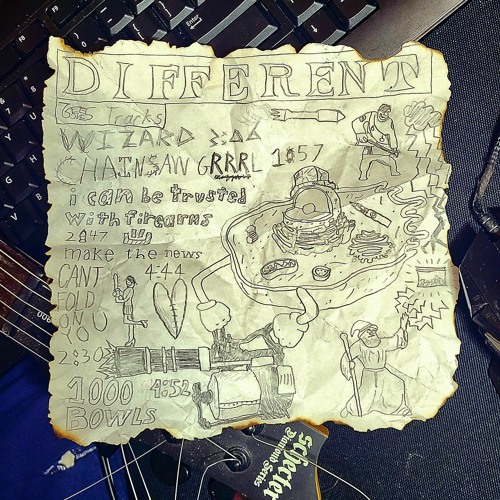 DIFFERENT
Tracks
WIZARD 3:04
CHAINSAW GRRRL 1:57
i can be trusted
with firearms
2:47
make the news
4:44
CANT
FOLD
ON U
YO
2:30
1000 4:52
BOWLS
schecter
Diamond Series
Enter